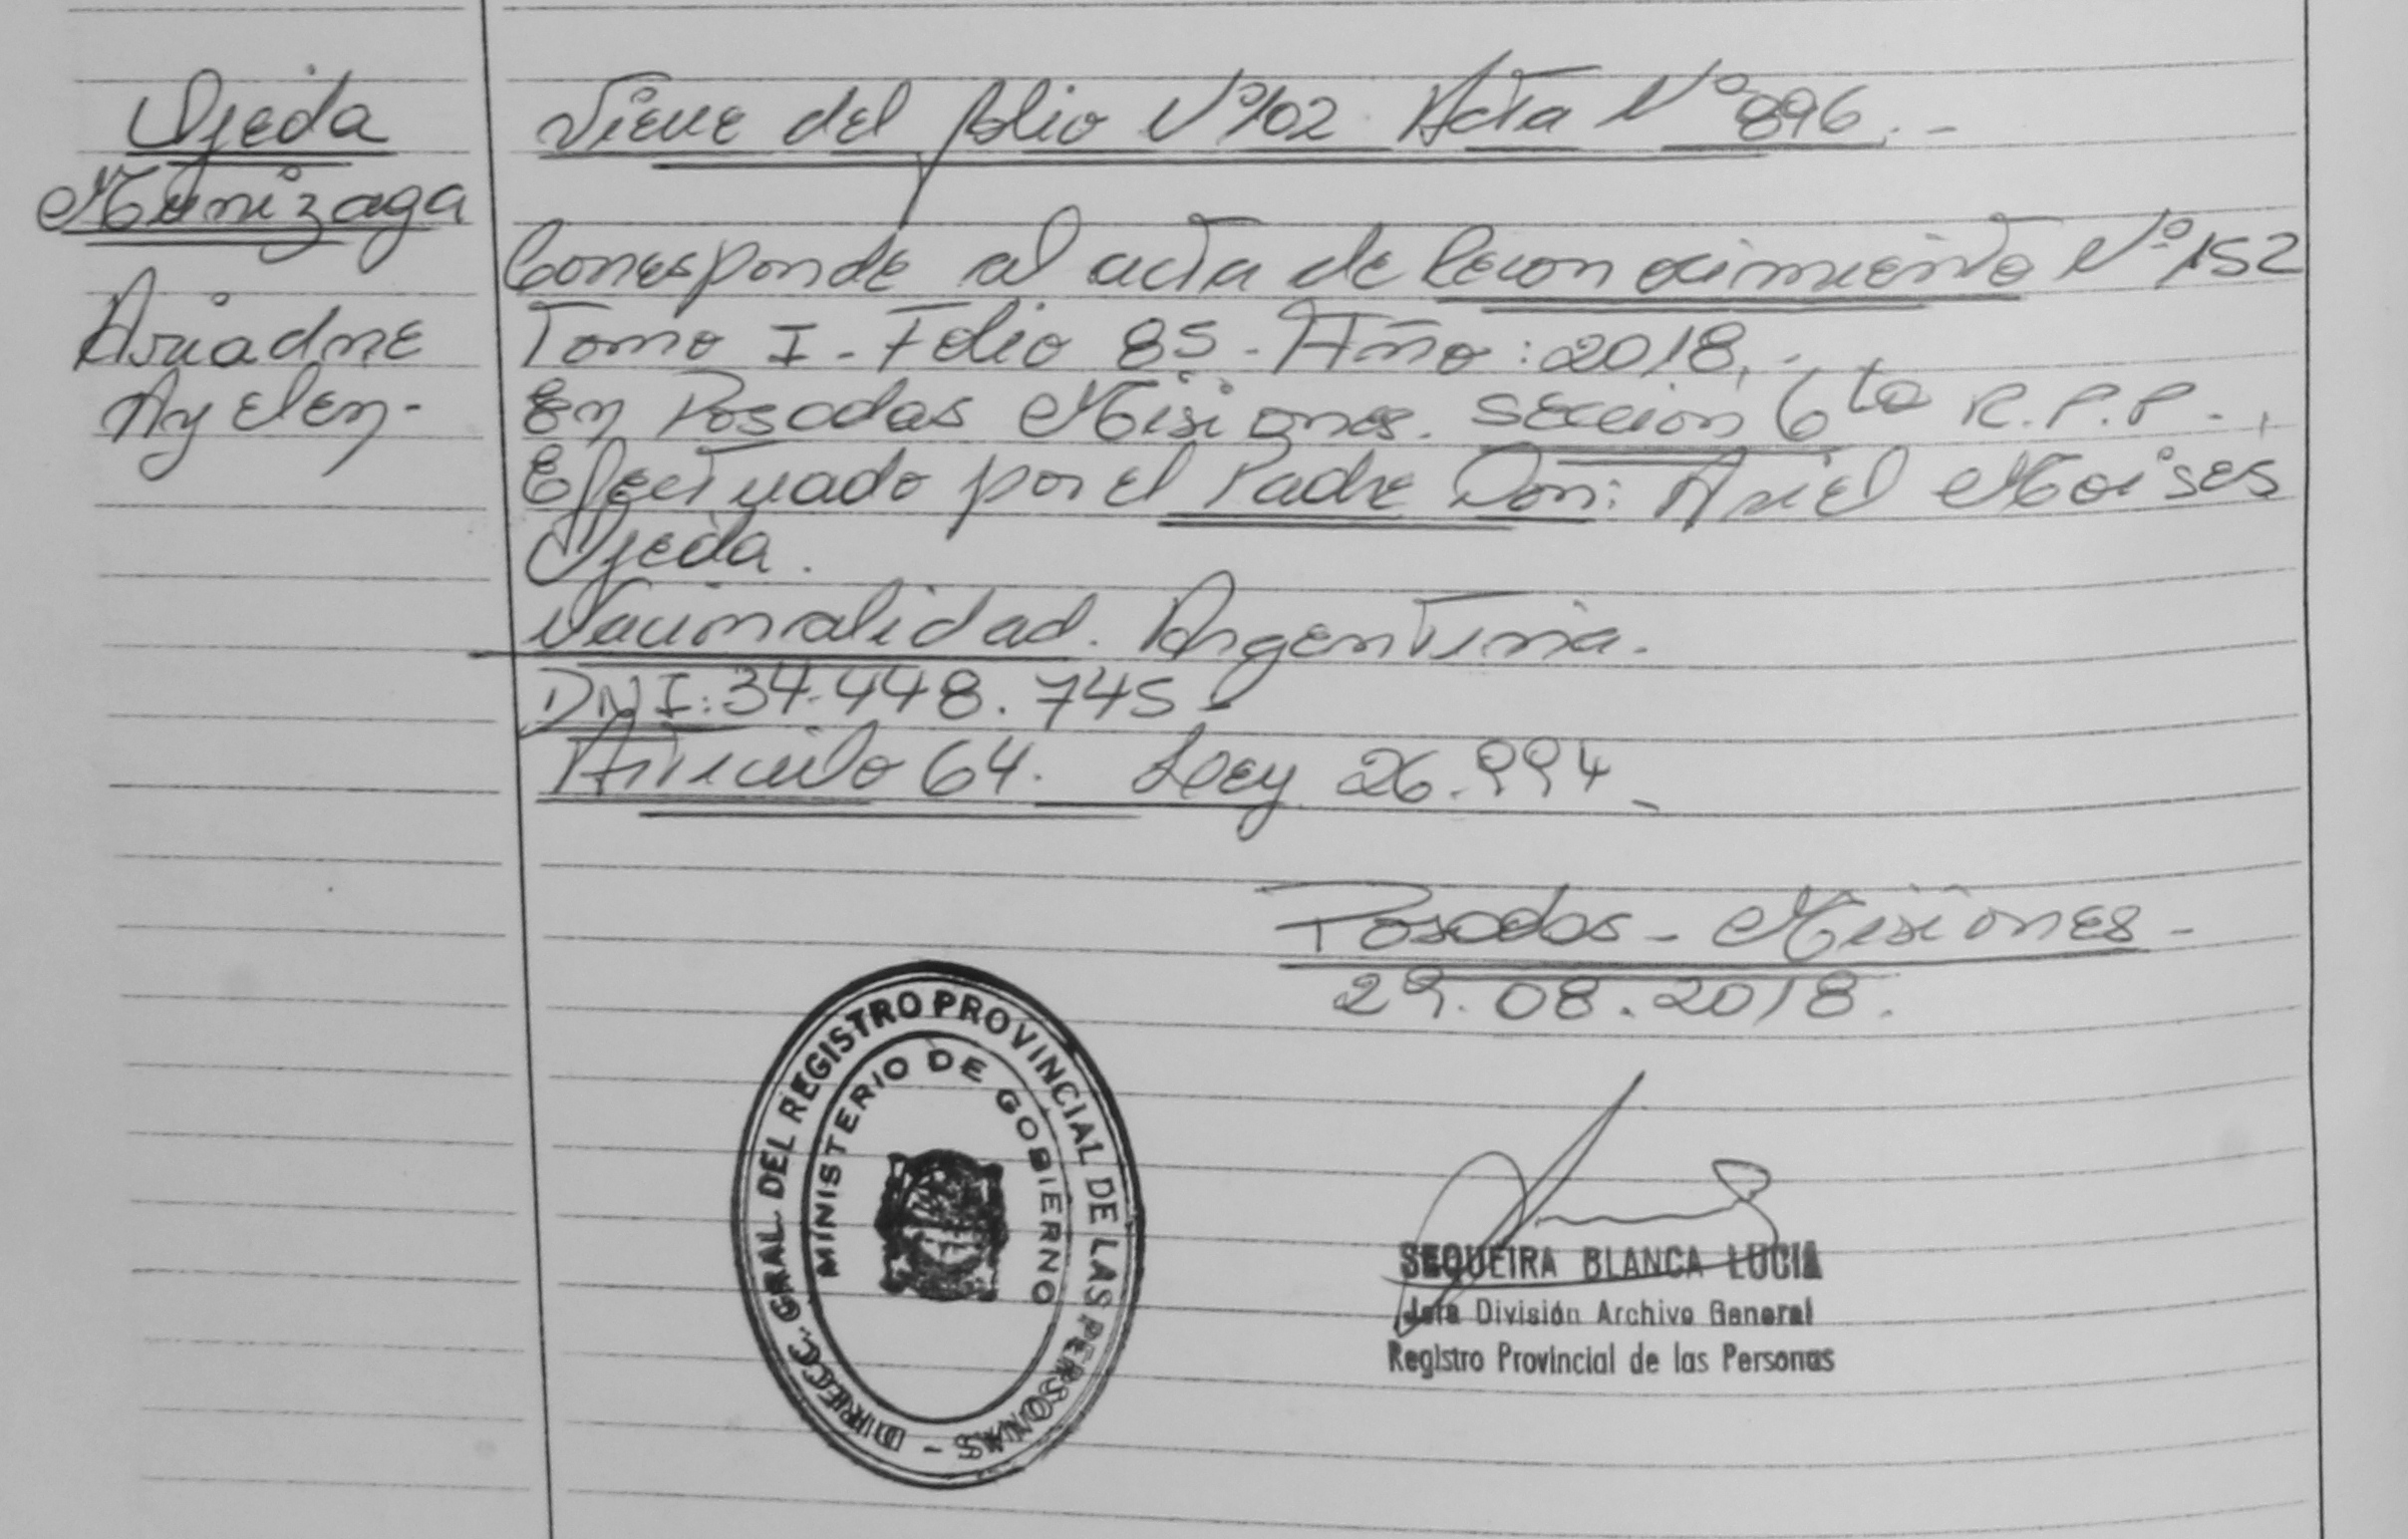 Ojeda
Munizaga
Ariadne
Ayelen.
Viene del folio Nº102. Acta Nº896.-
Corresponde al acta de Reconocimiento Nº152
Tomo I - Folio 85 - Año: 2018.-
En Posadas Misiones. Sección 6ta R.P.P.
Efectuado por el Padre Don: Ariel Moises
Ojeda.
Nacionalidad. Argentina.
DNI: 34.448.745-
Artículo 64. Ley 26.994-
Posadas - Misiones -
29.08.2018.
DIRECC. GRAL. DEL REGISTRO PROVINCIAL DE LAS PERSONAS -
MINISTERIO DE GOBIERNO
SEQUEIRA BLANCA LUCIA
Jefa División Archivo General
Registro Provincial de las Personas